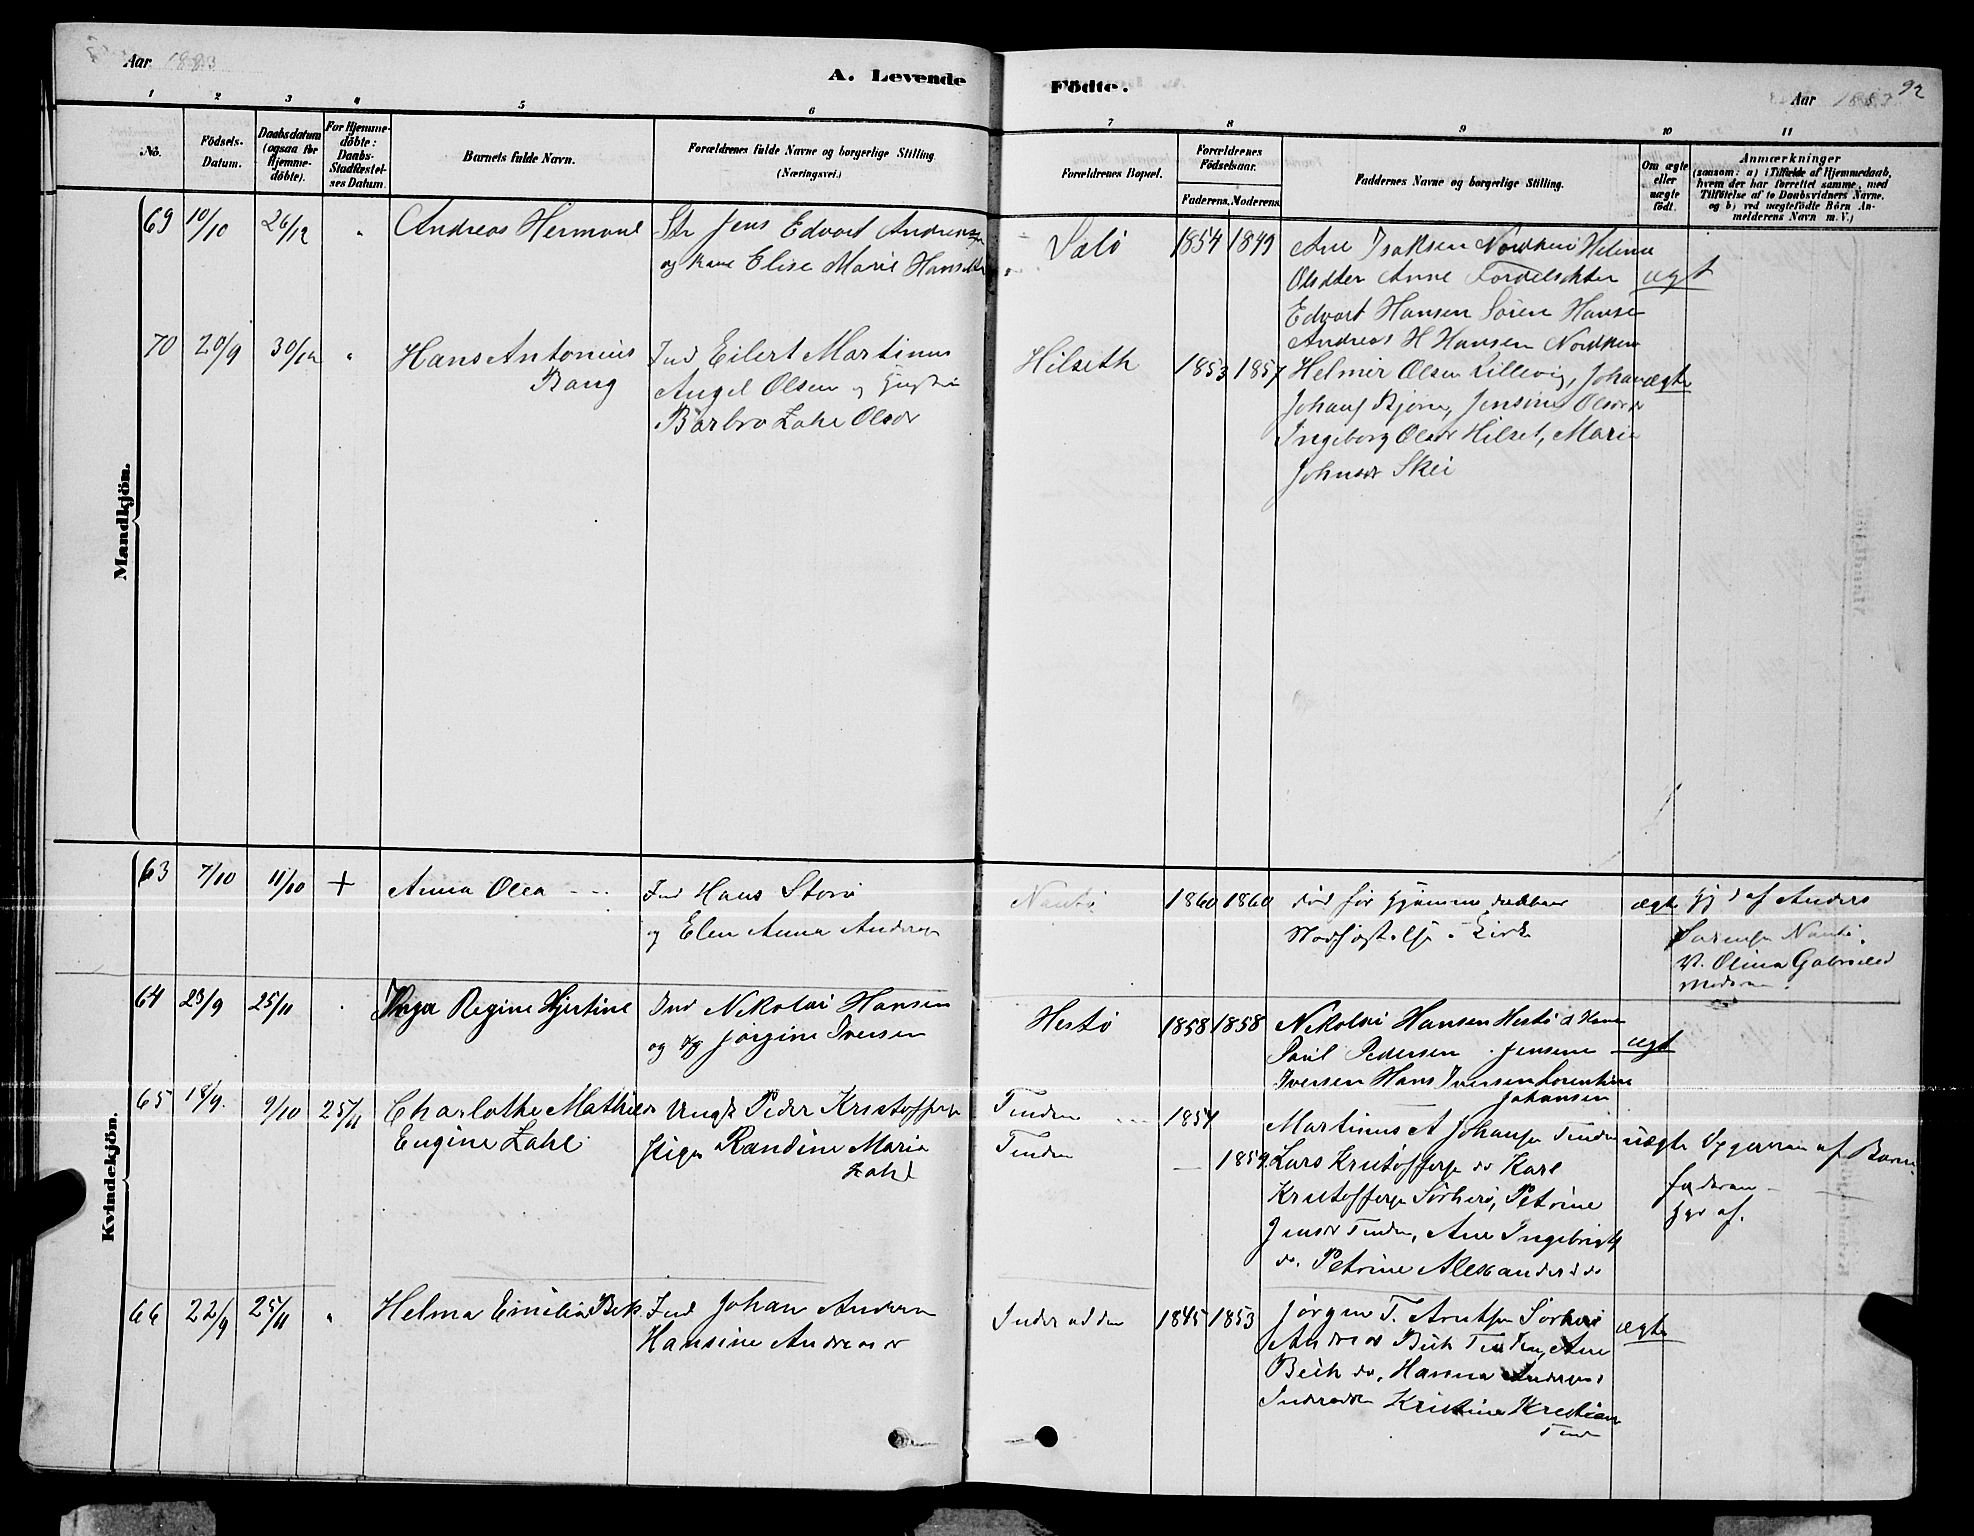 Aar 1883
A. Levende Födte.
Aar 1883
92
1 2 3 4 5 6 7 8 9 10 11
No.
Födsels-
Datum.
Daabsdatum
(ogsaa for
Hjemme-
döbte).
For Hjemme-
döbte:
Daabs-
Stadfæstel-
ses Datum.
Barnets fulde Navn.
Forældrenes fulde Navne og borgerlige Stilling
(Næringsvei.)
Forældrenes Bopæl.
Forældrenes
Födselsaar.
Faderens. Moderens.
Faddernes Navne og borgerlige Stilling.
Om ægte
eller
uægte
födt.
Anmærkninger
(saasom: a) i Tilfælde af Hjemmedaab,
hvem der har forrettet samme, med
Tilföielse af to Daabsvidners Navne.
og b) ved uægtefödte Börn An-
melderens Navn m. V.)
Mandkjön.
69 10/10 26/12 " Andreas Hermond
Str Jens Edvart Andreas
og Kone Elise Marie Hansdtr
Salö 1854 1849
Ane Isaksen Helene
Olsdter Anne
ægt
Edvart Hansen Sören Hanse
Andreas H Hansen
70 20/9 30/12 " Hans Antonius
Bang
Ind Eilert Martinus
Angel Olsen og
Barbro Zahe Olsdr
Hilseth 1853 1857
Helmer Olsen Lillevig, Johan ægte
Johans Björu, Jensine Olsdr
Ingeborg Olsdr Hilset, Marie
Johnsdr Skei
Kvindekjön.
63 7/10 11/10 + Anna Olea
Ind Hans Storö
og Elen Anna Anders
Nautö 1860 1860
död för Hjemme
Kirke
ægte
Hj d af Anders
Nautö.
V. Olina
64 23/9 25/11 Inga Regine Hjertine
Ind Nikolai Hansen
og Jörgine Iversen
Hestö 1858 1858
Nikolai Hansen Hestö
Paul Pedersen. Jensene ægt
Iversen Hans Iversen Lorentine
Johansen
65 18/9 9/10 25/11 Charlothe Mathilde
Eugine Zahl
Ungk Peder Kristoffersen
Pige Randine Maria
Zahl
Tinden 1854
Tinden — 1859
Martinus A Johansen Tinden uægte
Lars Kristoffersen do Karl
Kristoffersen Sörherö, Petrine
Jensdr Tinden, Ane Ingebrigts
do. Petrine Alexanders do
Opgaven af Barne
faderen
66 22/9 25/11 " Helma Emilie Bek
Ind Johan Andersen
Hansine Andreasdr
Inderodden 1845 1853
Jörgine T. Arntsen Sörherö ægte
Andreas Bech Tinden, Ane
Bech do, Hanna Anders
Inderodden Kristine Kristians
Tinden